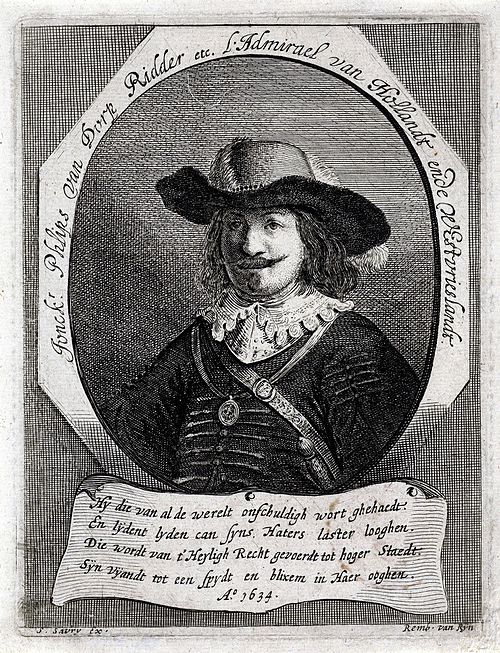 Jonck.r Phlips van Dorp Ridder etc. L. Admirael van Hollandt ende WEstvrieslandt
Hy die van al de werelt onschuldigh wort ghehaedt:
En lydent lyden can syns Haters laster looghen
Die wordt van t'Heyligh Recht gevoerdt tot hoger Staedt:
Syn vyandt tot een spydt en blixem in Haer ooghen.
A.o 1634.
S. Savry ex. Remb. van Ryn